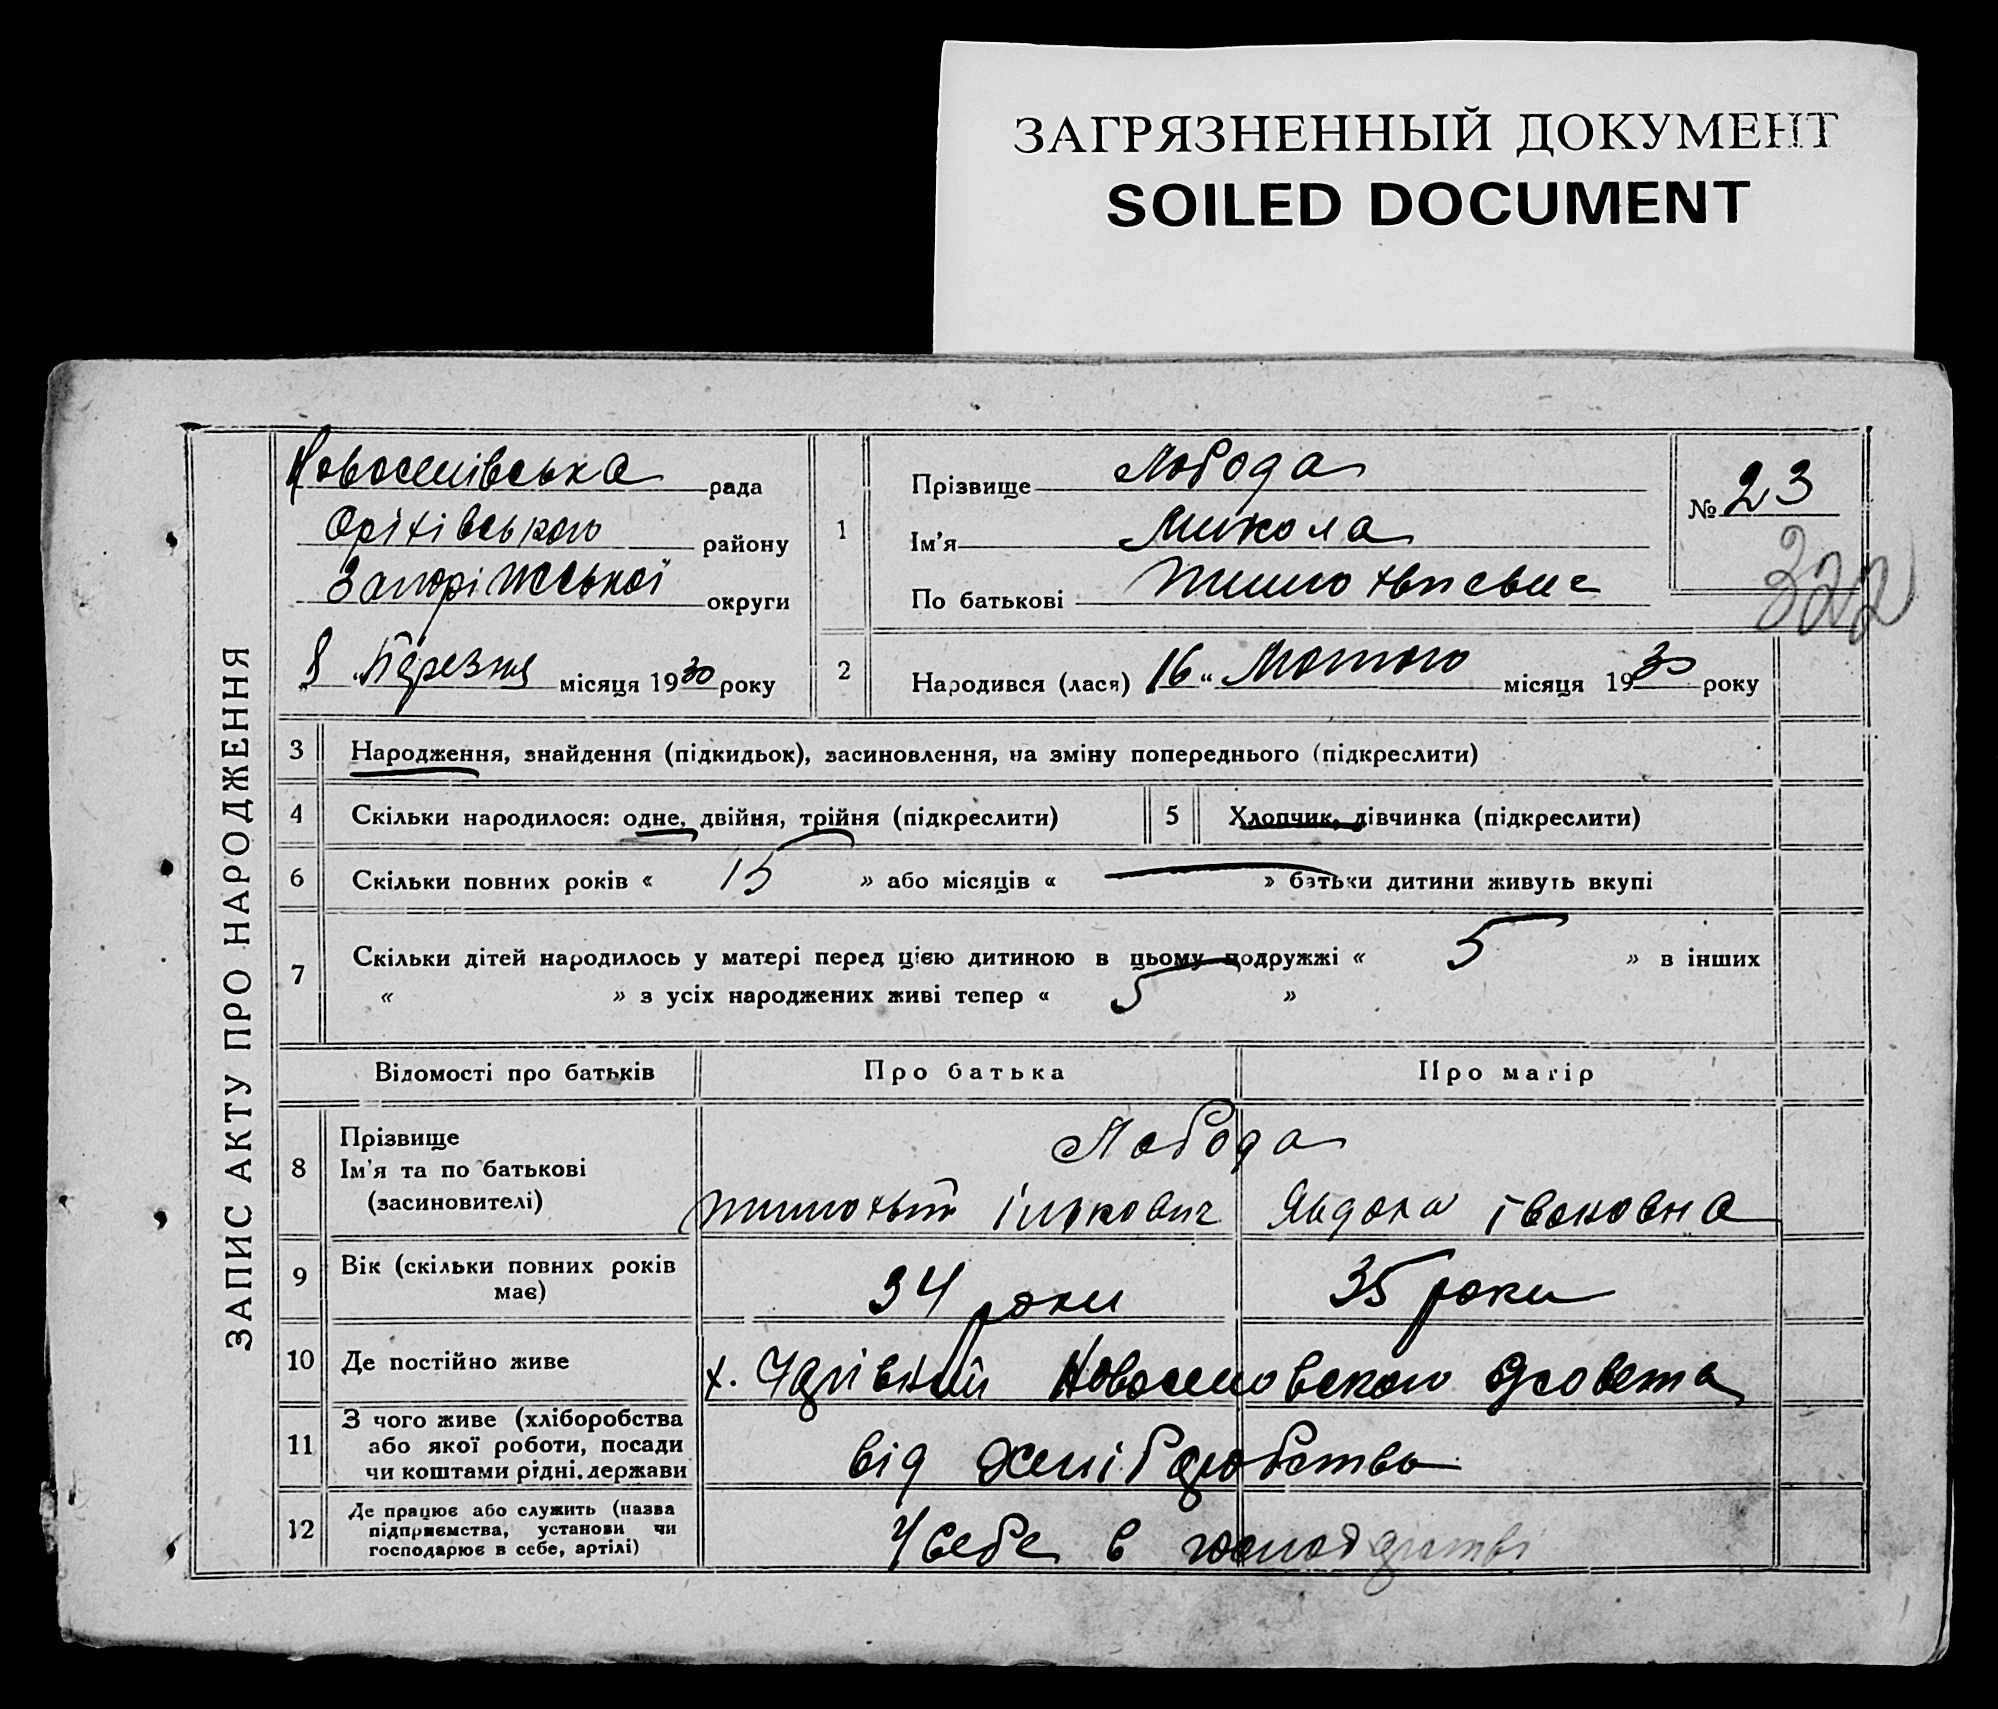 ЗАГРЯЗНЕННЫЙ ДОКУМЕНТ
SOILED DOCUMENT
ЗАПИС АКТУ ПРО НАРОДЖЕННЯ
Новоселівська рада
Оріхівського району
Запоріжської округи
8 " Березня місяця 1930 року
1 Прізвище Лобода
Ім'я Микола
По батькові Тимохвієвич
№ 23
322
2 Народився (лася) 16 " Лютого місяця 1930 року
3 Народження, знайдення (підкидьок), засиновлення, на зміну попереднього (підкреслити)
4 Скільки народилося: одне, двійня, трійня (підкреслити) 5 Хлопчик, дівчинка (підкреслити)
6 Скільки повних років « 15 » або місяців « — » батьки дитини живуть вкупі
7 Скільки дітей народилось у матері перед цією дитиною в цьому подружжі « 5 » в інших
« » з усіх народжених живі тепер « 5 »
Відомості про батьків Про батька Про матір
8 Прізвище
Ім'я та по батькові
(засиновителі)
Лобода
Тимохвій Ількович Явдоха Івановна
9 Вік (скільки повних років
має)
34 роки 35 роки
10 Де постійно живе х. Новоселовского
11 З чого живе (хліборобства
або якої роботи, посади
чи коштами рідні, держави
від хеліборобства
12 Де працює або служить (назва
підприємства, установи чи
господарює в себе, артілі)
У себе в господарстві